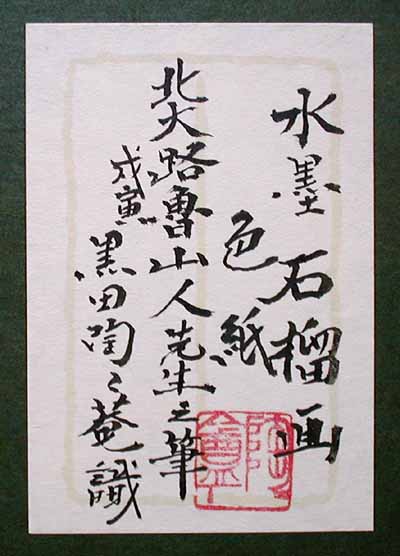 水墨石榴画
色紙
北大路魯山人先生之筆
戊寅
黒田陶々菴識